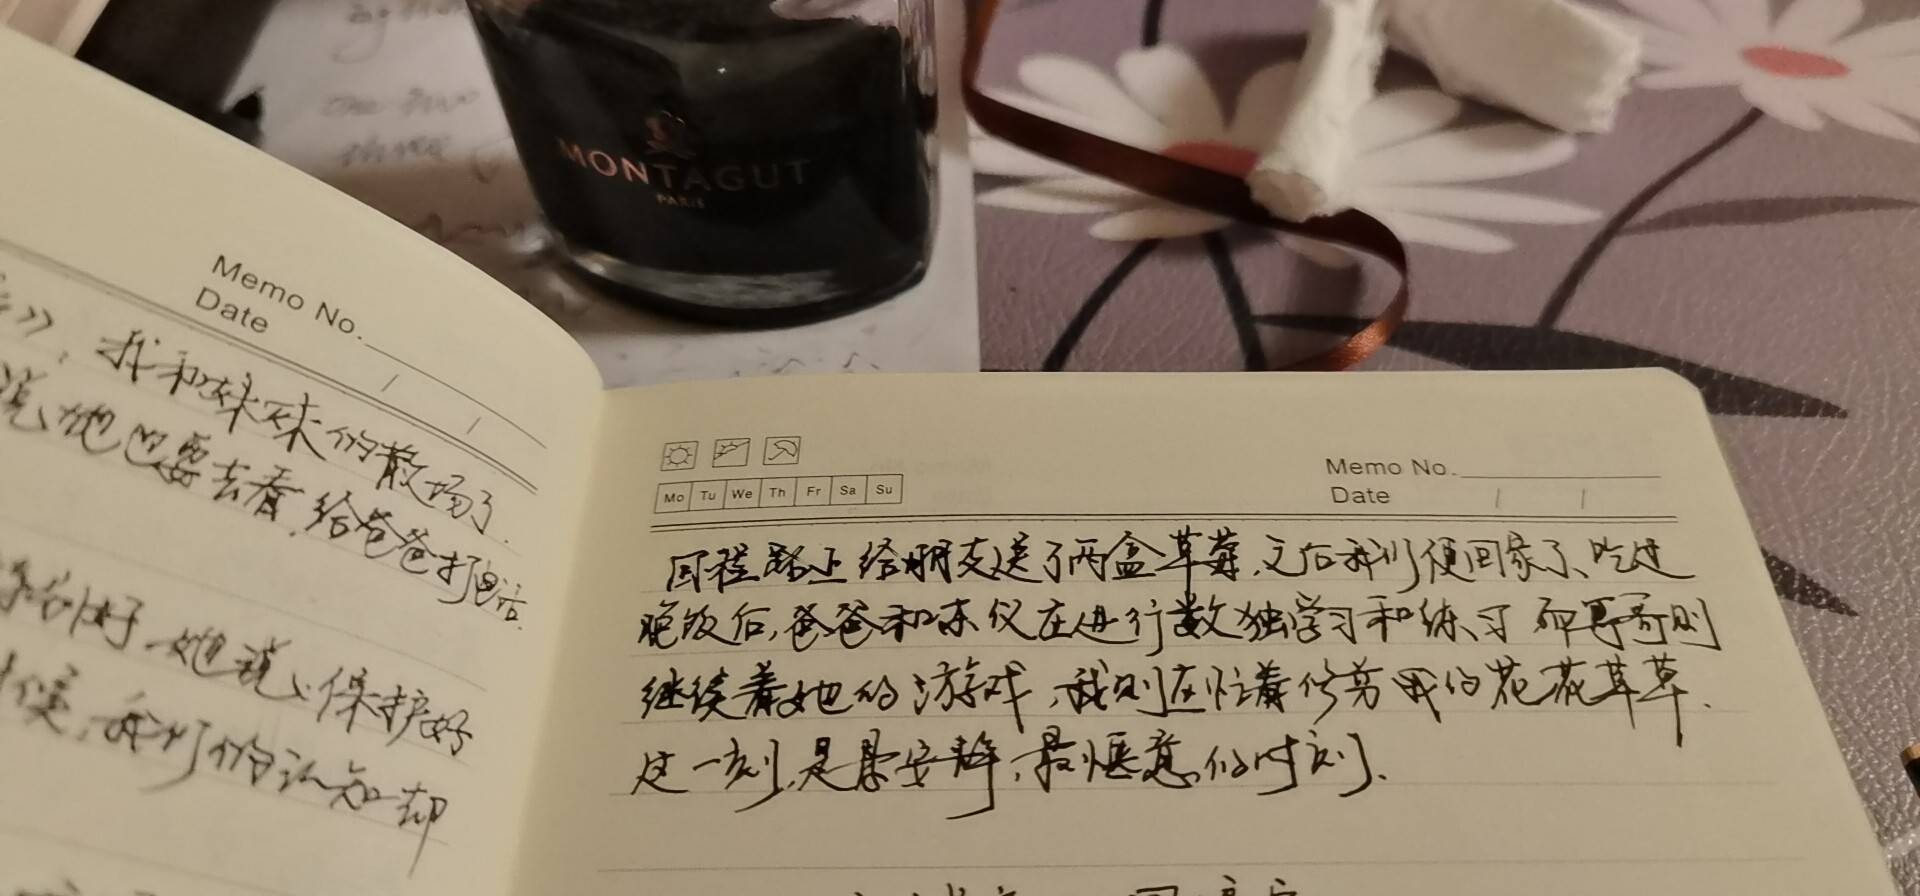 MONTAGUT
PARIS
Memo No.
Date / /
》，我和妹妹的散场了．
说她也要去看，给爸爸打电话．
好，她说：保护好
候，我们的认知却
Memo No.
Date / /
Mo Tu We Th Fr Sa Su
回程路上给朋友送了两盒草莓，之后我们便回家了、吃过
晚饭后，爸爸和东仪在进行数独学习和练习 而哥哥则
继续着她的游戏，我则在忙着修剪我的花花草草．
这一刻，是最安静，最惬意的时刻．